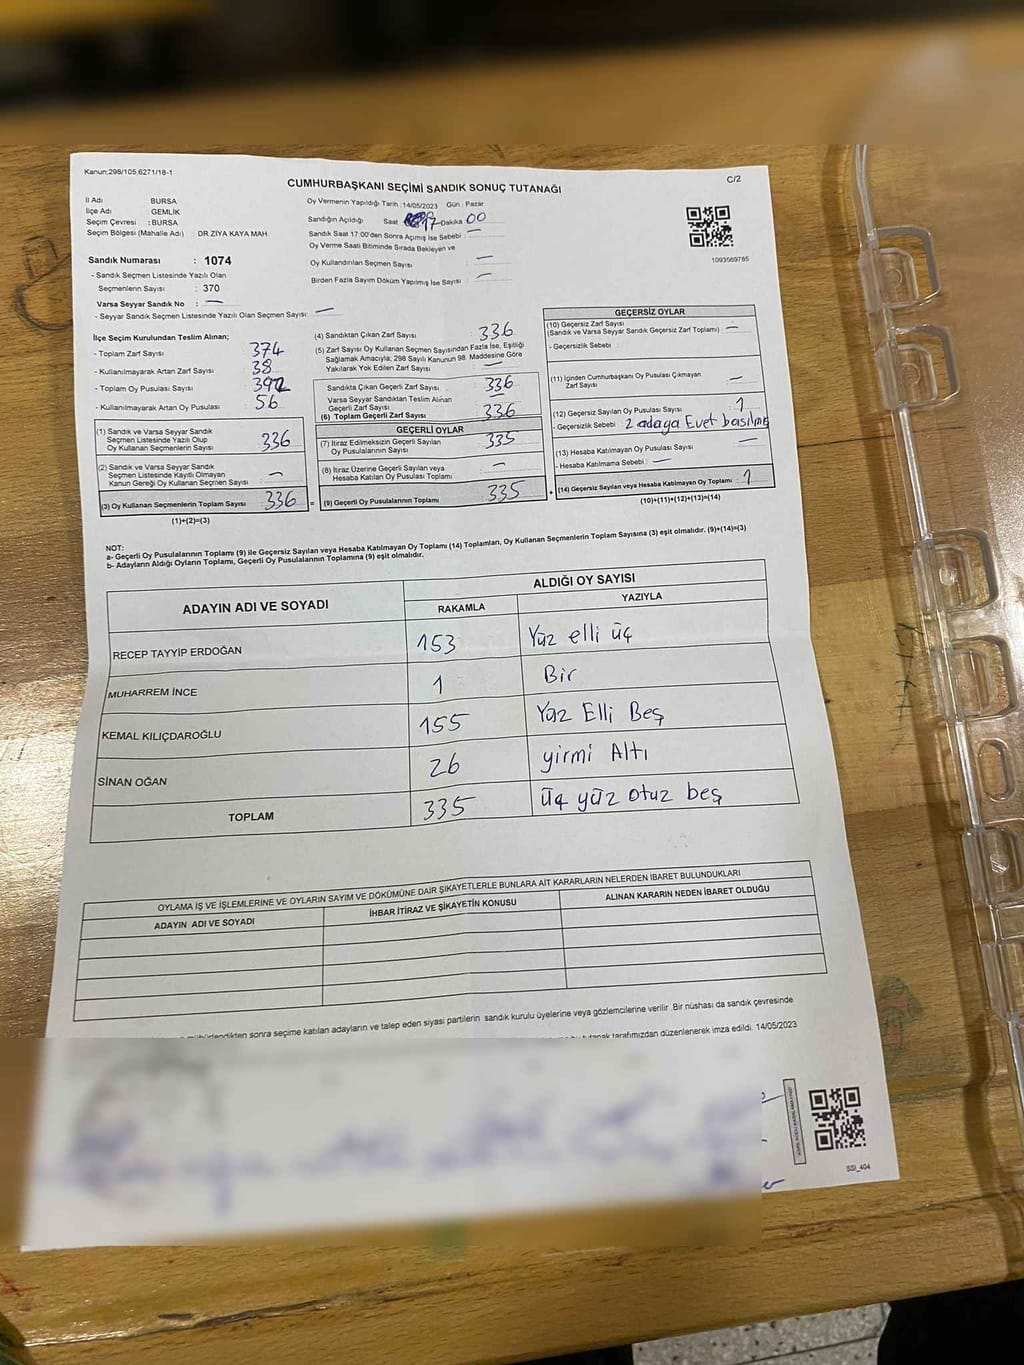 Kanun:298/105,6271/18-1
C/2
CUMHURBAŞKANI SEÇİMİ SANDIK SONUÇ TUTANAĞI
İl Adı BURSA
İlçe Adı GEMLİK
Seçim Çevresi : BURSA
Seçim Bölgesi (Mahalle Adı) : DR ZİYA KAYA MAH
Sandık Numarası : 1074
- Sandık Seçmen Listesinde Yazılı Olan
Seçmenlerin Sayısı : 370
Varsa Seyyar Sandık No : —
- Seyyar Sandık Seçmen Listesinde Yazılı Olan Seçmen Sayısı: —
Oy Vermenin Yapıldığı Tarih :14/05/2023 Gün : Pazar
Sandığın Açıldığı Saat 17 Dakika 00
Sandık Saat 17:00'den Sonra Açımış İse Sebebi : —
Oy Verme Saati Bitiminde Sırada Bekleyen ve
Oy Kullandırılan Seçmen Sayısı —
Birden Fazla Sayım Döküm Yapılmış İse Sayısı : —
1093569765
İlçe Seçim Kurulundan Teslim Alınan;
- Toplam Zarf Sayısı 374
- Kullanılmayarak Artan Zarf Sayısı 38
- Toplam Oy Pusulası Sayısı 392
- Kullanılmayarak Artan Oy Pusulası 56
(1) Sandık ve Varsa Seyyar Sandık
Seçmen Listesinde Yazılı Olup
Oy Kullanan Seçmenlerin Sayısı 336
(2) Sandık ve Varsa Seyyar Sandık
Seçmen Listesinde Kayıtlı Olmayan
Kanun Gereği Oy Kullanan Seçmen Sayısı —
(3) Oy Kullanan Seçmenlerin Toplam Sayısı 336 =
(1)+(2)=(3)
(4) Sandıktan Çıkan Zarf Sayısı : 336
(5) Zarf Sayısı Oy Kullanan Seçmen Sayısından Fazla İse, Eşitliği
Sağlamak Amacıyla; 298 Sayılı Kanunun 98. Maddesine Göre
Yakılarak Yok Edilen Zarf Sayısı : —
Sandıkta Çıkan Geçerli Zarf Sayısı 336
Varsa Seyyar Sandıktan Teslim Alınan
Geçerli Zarf Sayısı —
(6) Toplam Geçerli Zarf Sayısı 336
GEÇERLİ OYLAR
(7) İtiraz Edilmeksizin Geçerli Sayılan
Oy Pusulalarının Sayısı 335
(8) İtiraz Üzerine Geçerli Sayılan veya
Hesaba Katılan Oy Pusulası Toplamı : —
(9) Geçerli Oy Pusulalarının Toplamı 335 +
GEÇERSİZ OYLAR
(10) Geçersiz Zarf Sayısı
(Sandık ve Varsa Seyyar Sandık Geçersiz Zarf Toplamı) : —
- Geçersizlik Sebebi :
(11) İçinden Cumhurbaşkanı Oy Pusulası Çıkmayan
Zarf Sayısı —
(12) Geçersiz Sayılan Oy Pusulası Sayısı : 1
- Geçersizlik Sebebi : 2 adaya Evet basılmış
(13) Hesaba Katılmayan Oy Pusulası Sayısı : —
- Hesaba Katılmama Sebebi : —
(14) Geçersiz Sayılan veya Hesaba Katılmayan Oy Toplamı : 1
(10)+(11)+(12)+(13)=(14)
NOT:
a- Geçerli Oy Pusulalarının Toplamı (9) ile Geçersiz Sayılan veya Hesaba Katılmayan Oy Toplamı (14) Toplamları, Oy Kullanan Seçmenlerin Toplam Sayısına (3) eşit olmalıdır. (9)+(14)=(3)
b- Adayların Aldığı Oyların Toplamı, Geçerli Oy Pusulalarının Toplamına (9) eşit olmalıdır.
ADAYIN ADI VE SOYADI ALDIĞI OY SAYISI
RAKAMLA YAZIYLA
RECEP TAYYİP ERDOĞAN 153 Yüz elli üç
MUHARREM İNCE 1 Bir
KEMAL KILIÇDAROĞLU 155 Yüz Elli Beş
SİNAN OĞAN 26 yirmi Altı
TOPLAM 335 üç yüz otuz beş
OYLAMA İŞ VE İŞLEMLERİNE VE OYLARIN SAYIM VE DÖKÜMÜNE DAİR ŞİKAYETLERLE BUNLARA AİT KARARLARIN NELERDEN İBARET BULUNDUKLARI
ADAYIN ADI VE SOYADI İHBAR İTİRAZ VE ŞİKAYETİN KONUSU ALINAN KARARIN NEDEN İBARET OLDUĞU
sonra seçime katılan adayların ve talep eden siyasi partilerin sandık kurulu üyelerine veya gözlemcilerine verilir .Bir nüshası da sandık çevresinde
tutanak tarafımızdan düzenlenerek imza edildi. 14/05/2023
SSI_404